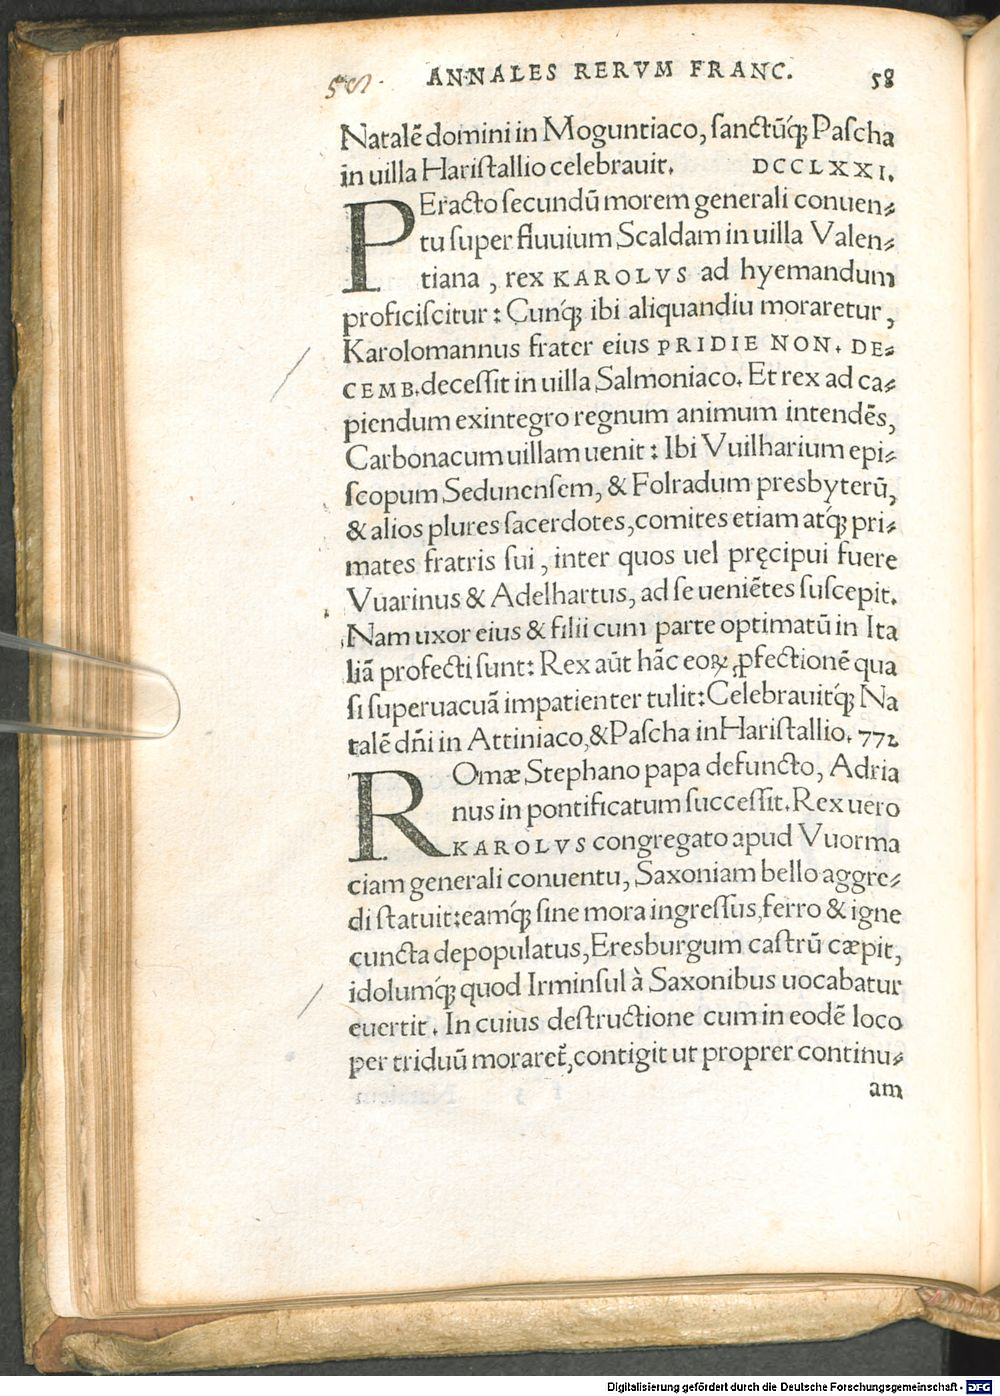 ANNALES RERVM FRANC. 58
Natalē domini in Moguntiaco, ſanctūq́ꝫ Paſcha
in uilla Hariſtallio celebrauit. DCCLXXI.
PEracto ſecundū morem generali conuen⸗
tu ſuper fluuium Scaldam in uilla Valen⸗
tiana, rex KAROLVS ad hyemandum
proficiſcitur: Cunq́ꝫ ibi aliquandiu moraretur,
Karolomannus frater eius PRIDIE NON. DE⸗
CEMB. deceſſit in uilla Salmoniaco. Et rex ad ca⸗
piendum exintegro regnum animum intendēs,
Carbonacum uillam uenit: Ibi Vuilharium epi⸗
ſcopum Sedunenſem, & Folradum presbyterū,
& alios plures ſacerdotes, comites etiam atq́ꝫ pri⸗
mates fratris ſui, inter quos uel pręcipui fuere
Vuarinus & Adelhartus, ad ſe ueniētes ſuſcepit.
Nam uxor eius & filii cum parte optimatū in Ita
liā profecti ſunt: Rex aūt hāc eoꝝ ꝓfectionē qua
ſi ſuperuacuā impatienter tulit: Celebrauitq́ꝫ Na
talē dn̄i in Attiniaco, & Paſcha in Hariſtallio. 772
ROmæ Stephano papa defuncto, Adria
nus in pontificatum ſucceſſit. Rex uero
KAROLVS congregato apud Vuorma
ciam generali conuentu, Saxoniam bello aggre⸗
di ſtatuit: eamq́ꝫ ſine mora ingreſſus, ferro & igne
cuncta depopulatus, Eresburgum caſtrū cæpit,
idolumq́ꝫ quod Irminſul à Saxonibus uocabatur
euertit. In cuius deſtructione cum in eodē loco
per triduū moraret̄, contigit ut proprer continu⸗
am
Digitalisierung gefördert durch die Deutsche Forschungsgemeinschaft - DFG